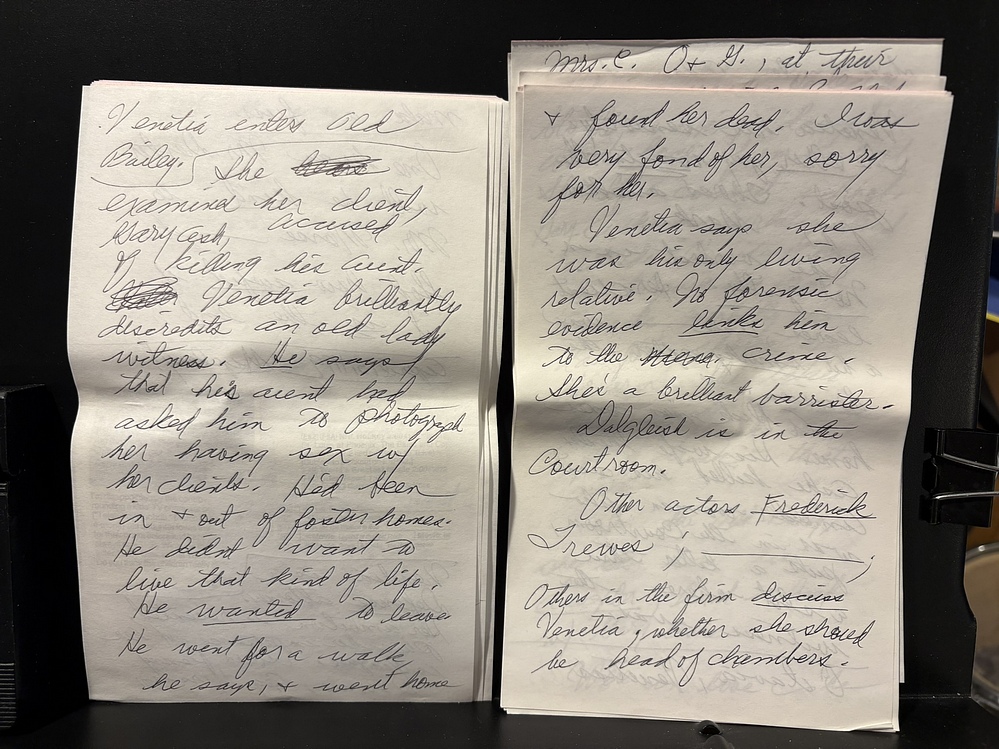 Venetia enters Old
Bailey. She
examined her client,
Gary Ash, accused
of killing his aunt.
Venetia brilliantly
discredits an old lady
witness. He says
that his aunt had
asked him to photograph
her having sex w/
her clients. He'd been
in + out of foster homes.
He didnt want to
live that kind of life.
He wanted to leave
He went for a walk
he says, + went home
Mrs. C. O + G., at their
+ found her dead. I was
very fond of her, sorry
for her.
Venetia says she
was his only living
relative. No forensic
evidence links him
to the crime.
She's a brilliant barrister.
Dalgleish is in the
Courtroom.
Other actors Frederick
Trewes ; ;
Others in the firm discuss
Venetia, whether she should
be head of chambers.